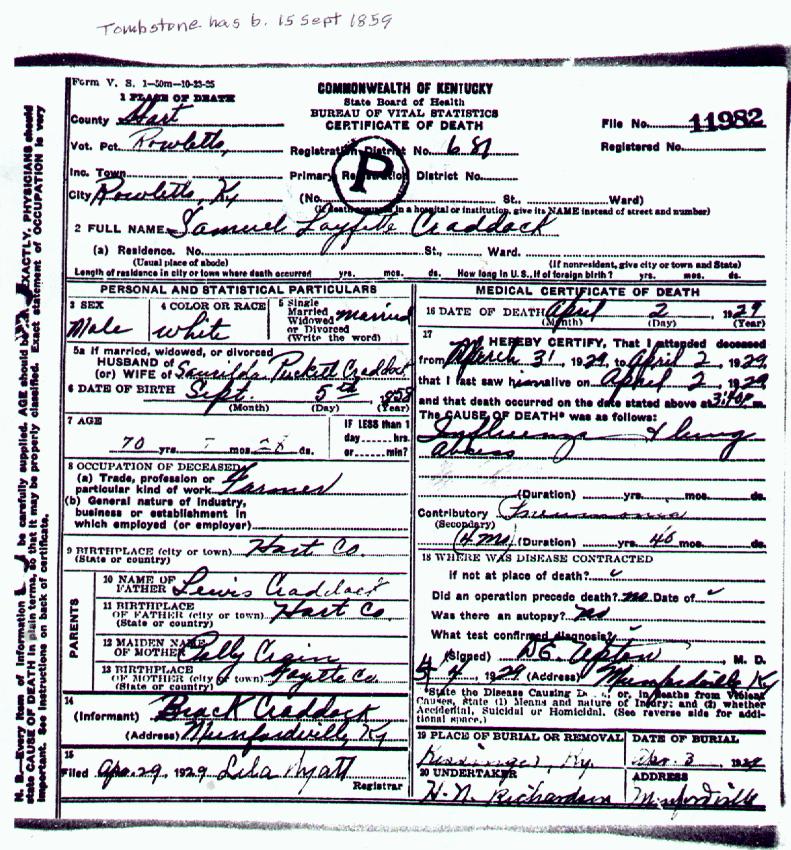 Tombstone has b. 15 Sept 1859
Form V. S. 1-50m-10-23-25
COMMONWEALTH OF KENTUCKY
State Board of Health
BUREAU OF VITAL STATISTICS
CERTIFICATE OF DEATH
1 PLACE OF DEATH
County Hart
File No. 11982
Vot. Pct. Rowletts,
Registration District No. 681
Registered No.
Inc. Town
Primary Registration District No.
P
City Rowletts, Ky
(No. St., Ward)
(If death occurred in a hospital or institution, give its NAME instead of street and number)
2 FULL NAME Samuel Layfette Craddock
(a) Residence. No. St., Ward.
(Usual place of abode) (If nonresident, give city or town and State)
Length of residence in city or town where death occurred yrs. mos. ds. How long in U. S., if of foreign birth? yrs. mos. ds.
PERSONAL AND STATISTICAL PARTICULARS
3 SEX
Male
4 COLOR OR RACE
white
5 Single
Married
Widowed
or Divorced
(Write the word)
married
5a If married, widowed, or divorced
HUSBAND OF
(or) WIFE of Puckett Craddock
6 DATE OF BIRTH Sept. 5th 1858
(Month) (Day) (Year)
7 AGE
70 yrs. mos. 28 ds.
IF LESS than 1
day hrs.
or min?
8 OCCUPATION OF DECEASED
(a) Trade, profession or
particular kind of work Farmer
(b) General nature of Industry,
business or establishment in
which employed (or employer)
9 BIRTHPLACE (city or town) Hart Co.
(State or country)
PARENTS
10 NAME OF
FATHER Lewis Craddock
11 BIRTHPLACE
OF FATHER (city or town) Hart Co.
(State or country)
12 MAIDEN NAME
OF MOTHER Sally
13 BIRTHPLACE
OF MOTHER (city or town) Fayette Co.
(State or country)
14
(Informant) Brack Craddock
(Address) Munfordville, Ky
15
Filed Apr. 29, 1929 Lila Wyatt
Registrar
MEDICAL CERTIFICATE OF DEATH
16 DATE OF DEATH April 2 1929
(Month) (Day) (Year)
17
I HEREBY CERTIFY, That I attended deceased
from March 31 1929, to April 2, 1929,
that I last saw him alive on April 2, 1929
and that death occurred on the date stated above at 3:40 P. m.
The CAUSE OF DEATH* was as follows:
Influenza & lung
abscess
(Duration) yrs. mos. ds.
Contributory Pneumonia
(Secondary)
(4 mo) (Duration) yrs. mos. ds.
18 WHERE WAS DISEASE CONTRACTED
If not at place of death?
Did an operation precede death? no Date of
Was there an autopsy? no
What test confirmed diagnosis?
(Signed) D.E. Upton, M. D.
4, 1929 (Address) Munfordville Ky
*State the Disease Causing Death, or, in deaths from Violent
Causes, state (1) Means and nature of Injury; and (2) whether
Accidental, Suicidal or Homicidal. (See reverse side for addi-
tional space.)
19 PLACE OF BURIAL OR REMOVAL
Kissinger, Ky.
DATE OF BURIAL
Apr. 3 1929
20 UNDERTAKER
H. N. Richardson
ADDRESS
Munfordville
N. B.—Every item of information should be carefully supplied. AGE should be stated EXACTLY. PHYSICIANS should
state CAUSE OF DEATH in plain terms, so that it may be properly classified. Exact statement of OCCUPATION is very
important. See instructions on back of certificate.